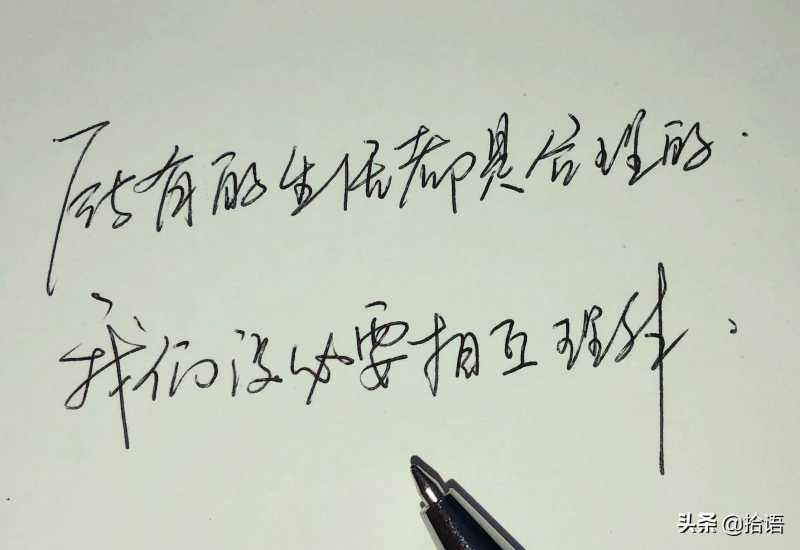 所有的生活都是合理的.
我们没必要相互理解.
头条 @拾语